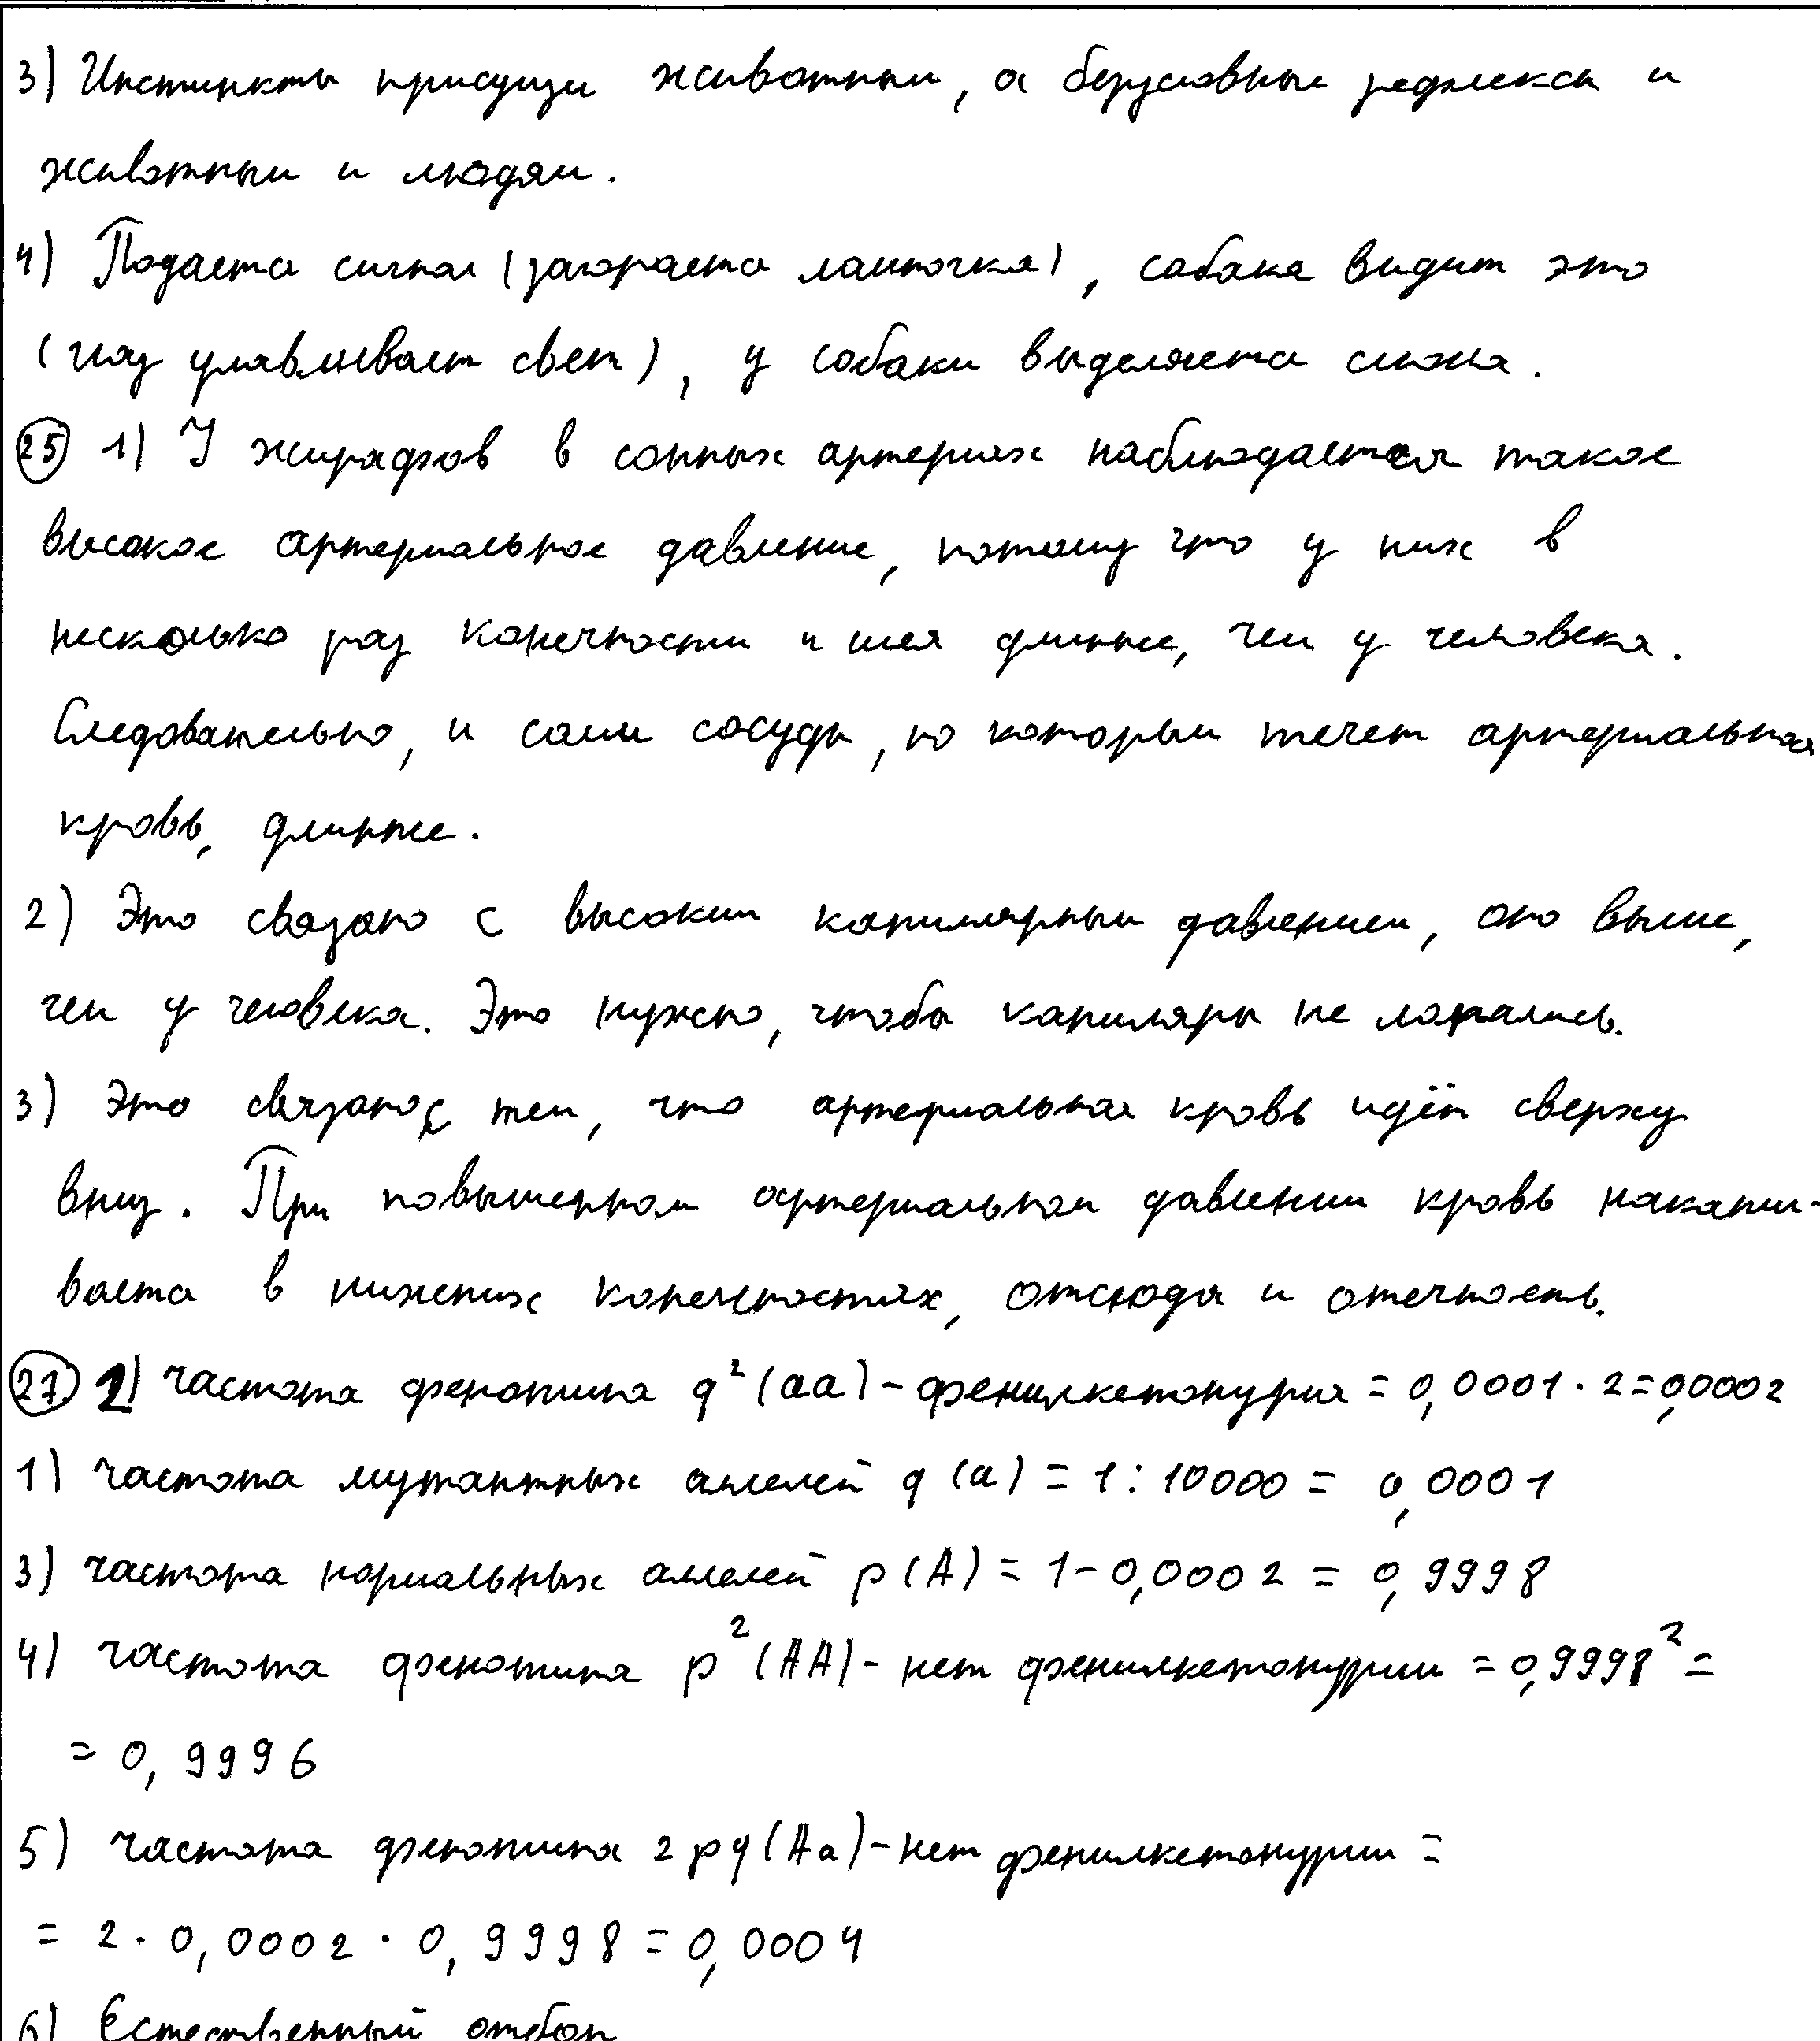 3) Инстинкты присущи животным, а безусловные рефлексы и
животным и людям.
4) Подается сигнал (загорается лампочка), собака видит это
(глаз улавливает свет), у собаки выделяется слюна.
25 1) У жирафов в сонных артериях наблюдается такое
высокое артериальное давление, потому что у них в
несколько раз конечности и шея длинее, чем у человека.
Следовательно, и сами сосуды, по которым течет артериальная
кровь, длинее.
2) Это связано с высоким капилярным давлением, оно выше,
чем у человека. Это нужно, чтобы капиляры не лопались.
3) Это связано с тем, что артериальная кровь идёт сверху
вниз. При повышенном артериальном давлении кровь накапли-
вается в нижних конечностях, отсюда и отечность.
27 2) частота фенотипа q²(aa) - фенилкетонурия = 0,0001 · 2 = 0,0002
1) частота мутантных аллелей q(a) = 1 : 10000 = 0,0001
3) частота нормальных аллелей p(A) = 1 - 0,0002 = 0,9998
4) частота фенотипа p²(AA) - нет фенилкетонурии = 0,9998² =
= 0,9996
5) частота фенотипа 2pq(Aa) - нет фенилкетонурии =
= 2 · 0,0002 · 0,9998 = 0,0004
6) Естественный отбор